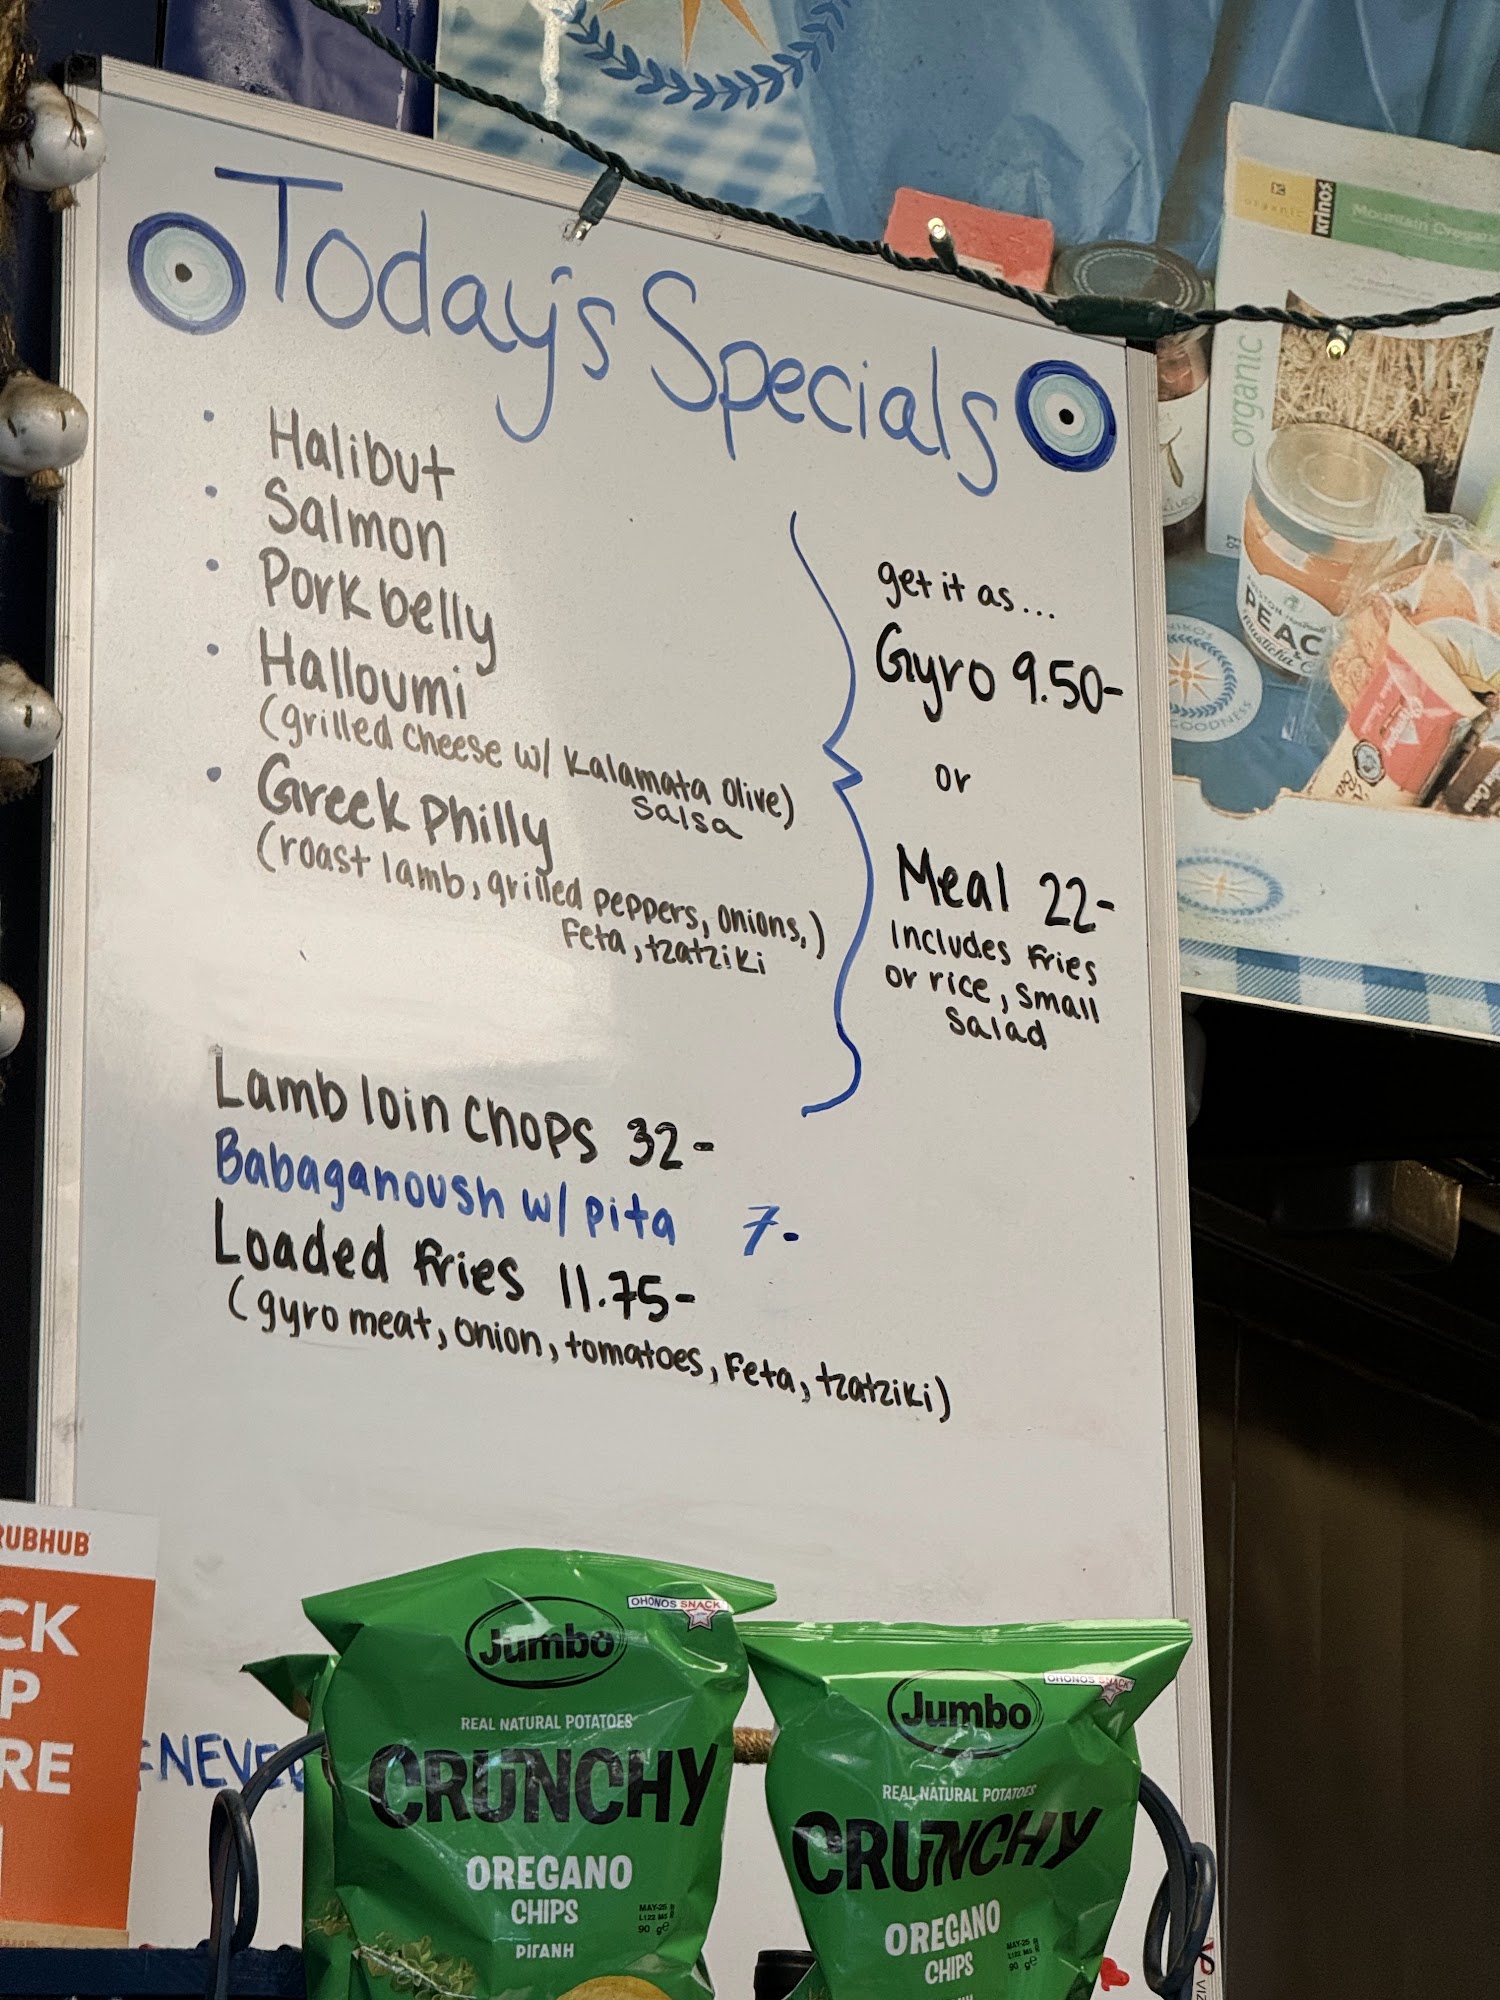 Today's Specials
• Halibut
• Salmon
• Pork belly
• Halloumi
(grilled cheese w/ Kalamata Olive)
Salsa
• Greek Philly
(roast lamb, grilled peppers, onions,)
Feta, tzatziki
get it as...
Gyro 9.50-
or
Meal 22-
includes fries
or rice, small
salad
Lamb loin chops 32-
Babaganoush w/ pita 7-
Loaded fries 11.75-
(gyro meat, onion, tomatoes, Feta, tzatziki)
organic
krinos
Mountain Oregano
organic
PEAC
NIKOS
GOODNESS
RUBHUB
CK
P
RE
NEVE
OHONOS SNACK
Jumbo
REAL NATURAL POTATOES
CRUNCHY
OREGANO
CHIPS
ΡΙΓΑΝΗ
MAY-25
90 g℮
OHONOS SNACK
Jumbo
REAL NATURAL POTATOES
CRUNCHY
OREGANO
CHIPS
MAY-25
90 g℮
VIZ